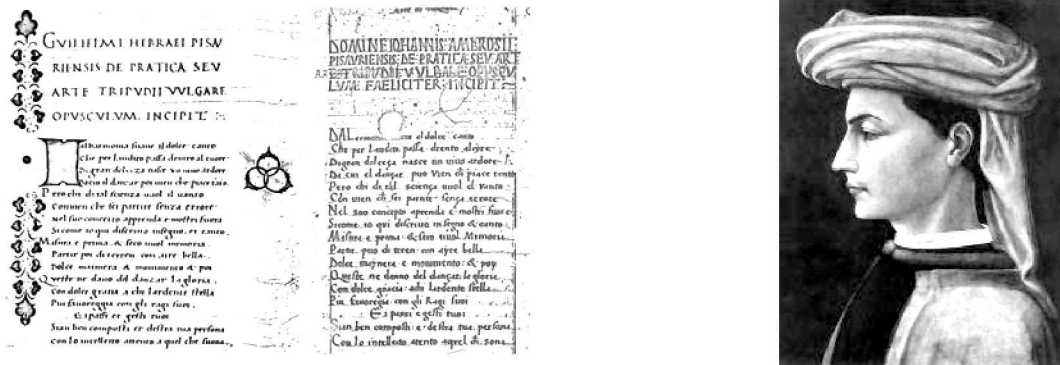 GVILIELMI HEBRAEI PISAV
RIENSIS DE PRATICA SEV
ARTE TRIPVDII VVLGARE
OPVSCVLVM. INCIPIT
Dal harmonia suaue il dolce canto
Che per lauditto passa dentro al cuore
Di gran dolceza nasce un uiuo ardore
Da cui il danzar poi uien che piace tanto
Pero chi di tal scienza uuol il uanto
Conuien che sei partite senza errore
Nel suo concetto apprenda e mostri fuora
Sicome io qui discriuo insegno, et canto.
Misura e prima, & seco uuol memoria
Partir poi di terren con aire bella
Dolce mainera & mouimento & poi
Queste ne dano del danzar la gloria
Con dolce gratia a chi lardente stella
Piu fauoreggia con gli ragi suoi.
E i passi et gesti tuoi
Sian ben composti et destra tua persona
Con lo intelletto attento a quel che suona.
DOMINE IOHANNIS AMBROSII
PISAVRIENSIS DE PRATICA SEV ART
TRIPVDII VVLGARE OPVSCV
LVM FAELICITER INCIPIT
DAL el dolce canto
Che per lauditu passa drento alcore
Di gran dolceça nasce un uiuo ardore
Da cui el dançar puo vien che piace tanto
Pero chi di tal sciença uuol el vanto
Con uien che sei partite sença errore
Nel suo concepto aprenda e mostri fuore
Sicome io qui discriuo insegno & canto
Misura e prima & seco uuol Memoria
Partir puo di teren con ayre bella
Dolce maynera e mouimento & poy
Queste ne danno del dançar la gloria
Con dolce gracia achi lardente stella
Piu fauoregia con gli Ragi suoi
E i passi e gesti tuoi
Sian ben composti e destra tua persona
Con lo intellecto atento aquel che sona